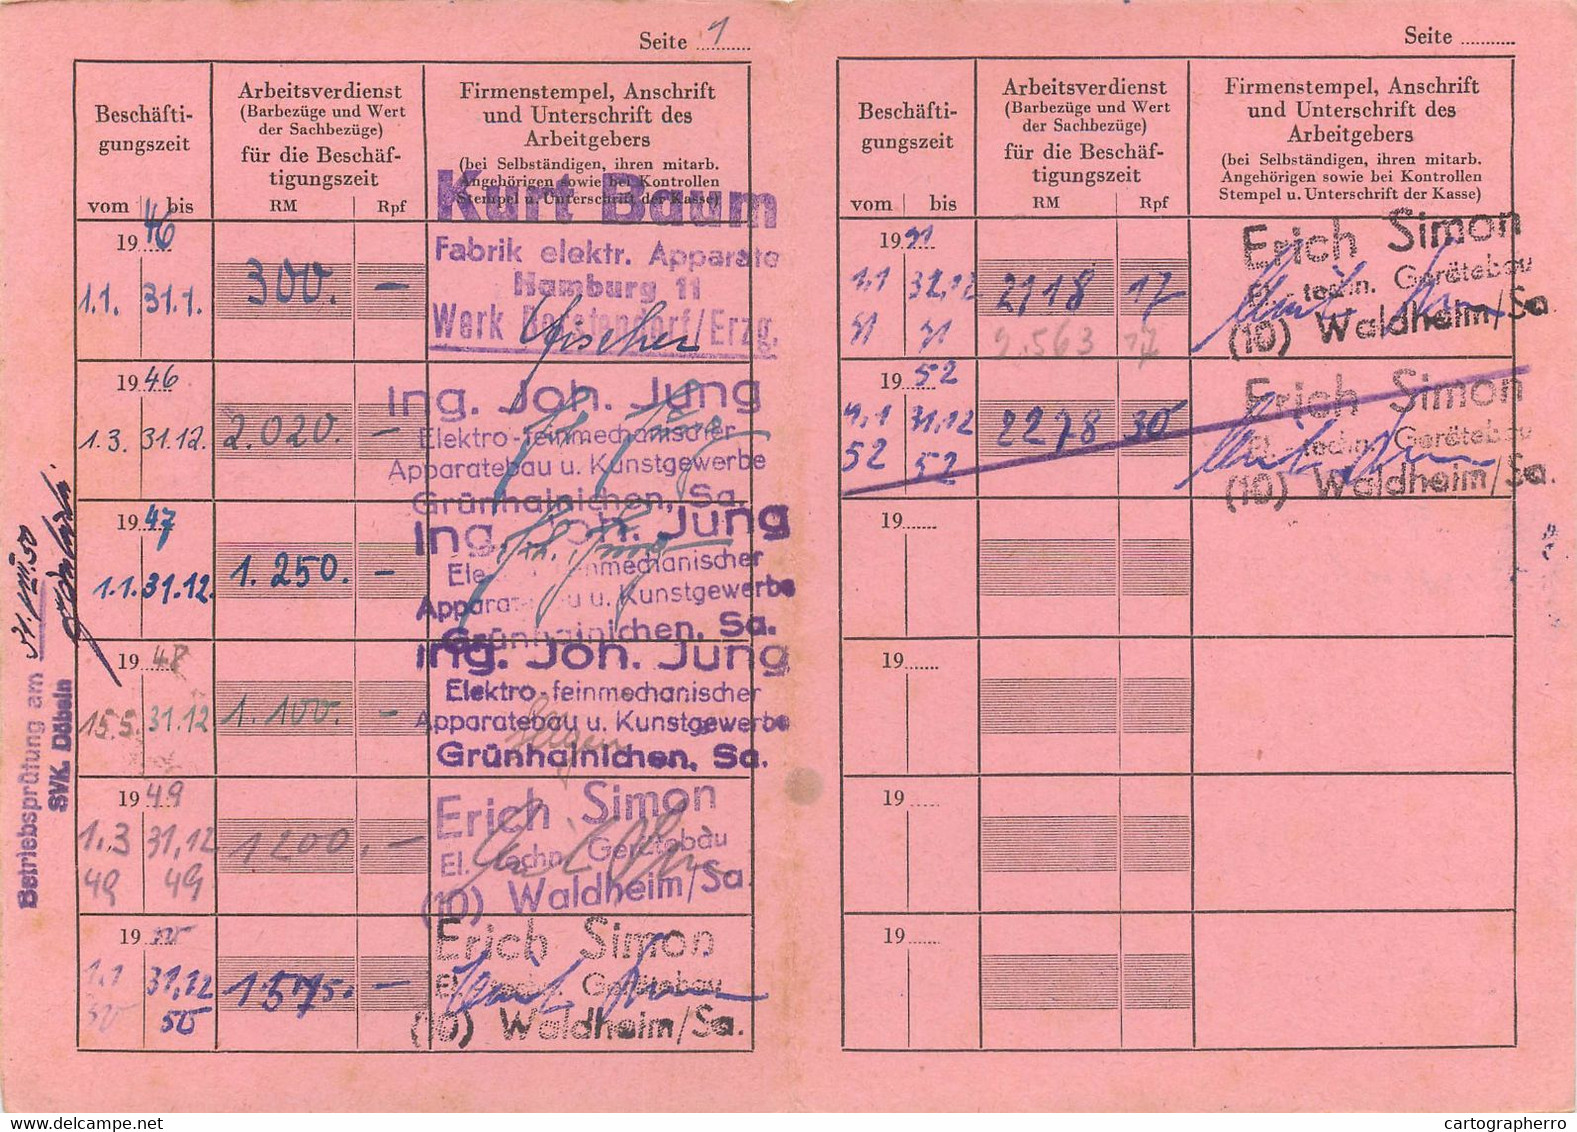 Seite 1
Beschäfti-
gungszeit
vom bis
Arbeitsverdienst
(Barbezüge und Wert
der Sachbezüge)
für die Beschäf-
tigungszeit
RM Rpf
Firmenstempel, Anschrift
und Unterschrift des
Arbeitgebers
(bei Selbständigen, ihren mitarb.
Angehörigen sowie bei Kontrollen
Stempel u. Unterschrift der Kasse)
1946
1.1. 31.1. 300. —
Kurt Baum
Fabrik elektr. Apparate
Hamburg 11
Werk Borstendorf/Erzg.
1946
1.3. 31.12. 2.020. —
Ing. Joh. Jung
Elektro-feinmechanischer
Apparatebau u. Kunstgewerbe
Grünhainichen, Sa.
1947
1.1. 31.12. 1.250. —
Ing. Joh. Jung
Elektro-feinmechanischer
Apparatebau u. Kunstgewerbe
Grünhainichen, Sa.
1948
15.5. 31.12 1.100. —
Ing. Joh. Jung
Elektro-feinmechanischer
Apparatebau u. Kunstgewerbe
Grünhainichen, Sa.
1949
1.3 31.12 1200. —
49 49
Erich Simon
El. techn. Gerätebau
(10) Waldheim/Sa.
1950
1.1 31.12 1575. —
50 50
Erich Simon
El. techn. Gerätebau
(10) Waldheim/Sa.
Betriebsprüfung am 31.VIII.50
SVK. Döbeln
Seite
Beschäfti-
gungszeit
vom bis
Arbeitsverdienst
(Barbezüge und Wert
der Sachbezüge)
für die Beschäf-
tigungszeit
RM Rpf
Firmenstempel, Anschrift
und Unterschrift des
Arbeitgebers
(bei Selbständigen, ihren mitarb.
Angehörigen sowie bei Kontrollen
Stempel u. Unterschrift der Kasse)
1951
1.1 31.12 2118 17
51 51 9.563 17
Erich Simon
El. techn. Gerätebau
(10) Waldheim/Sa.
1952
1.1 31.12 2278 30
52 52
Erich Simon
El. techn. Gerätebau
(10) Waldheim/Sa.
19
19
19
19
www.delcampe.net
cartographerro